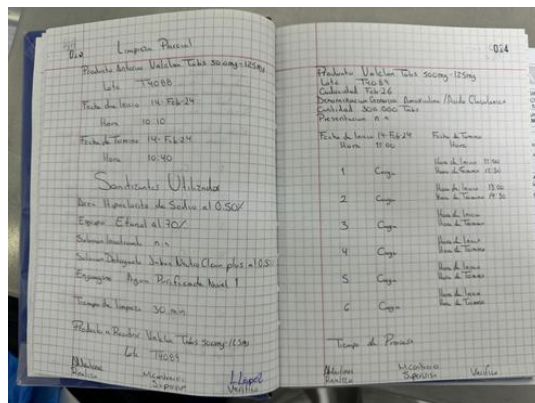 Limpieza Parcial
Producto Anterior Valclan Tabs 500mg-125mg
Lote T4088
Fecha de Inicio 14-Feb-24
Hora 10:10
Fecha de Termino 14-Feb-24
Hora 10:40
Sanitizantes Utilizados
Area Hipoclorito de Sodio al 0.50%
Equipo Etanol al 70%
n.a
Solucion Detergente Jabon Neutro Clean plus al 0.5
Enjuague Agua Purificada Nivel 1
Tiempo de limpieza 30 min
Producto a Recibir Valclan Tabs 500mg-125mg
Lote T4089
Realizo Superviso Verifico
024
Producto Valclan Tabs 500mg-125mg
Lote T4089
Caducidad Feb-26
Denominacion Generica Amoxicilina/Acido Clavulanico
Cantidad 300 000 Tabs
Presentacion n.a
Fecha de Inicio 14-Feb-24 Fecha de Termino
Hora 11:00 Hora
Hora de Inicio 11:00
1 Carga Hora de Termino 12:30
Hora de Inicio 13:00
2 Carga Hora de Termino 14:30
Hora de Inicio
3 Carga Hora de Termino
Hora de Inicio
4 Carga Hora de Termino
Hora de Inicio
5 Carga Hora de Termino
Hora de Inicio
6 Carga Hora de Termino
Tiempo de Proceso
Realizo Superviso Verifico